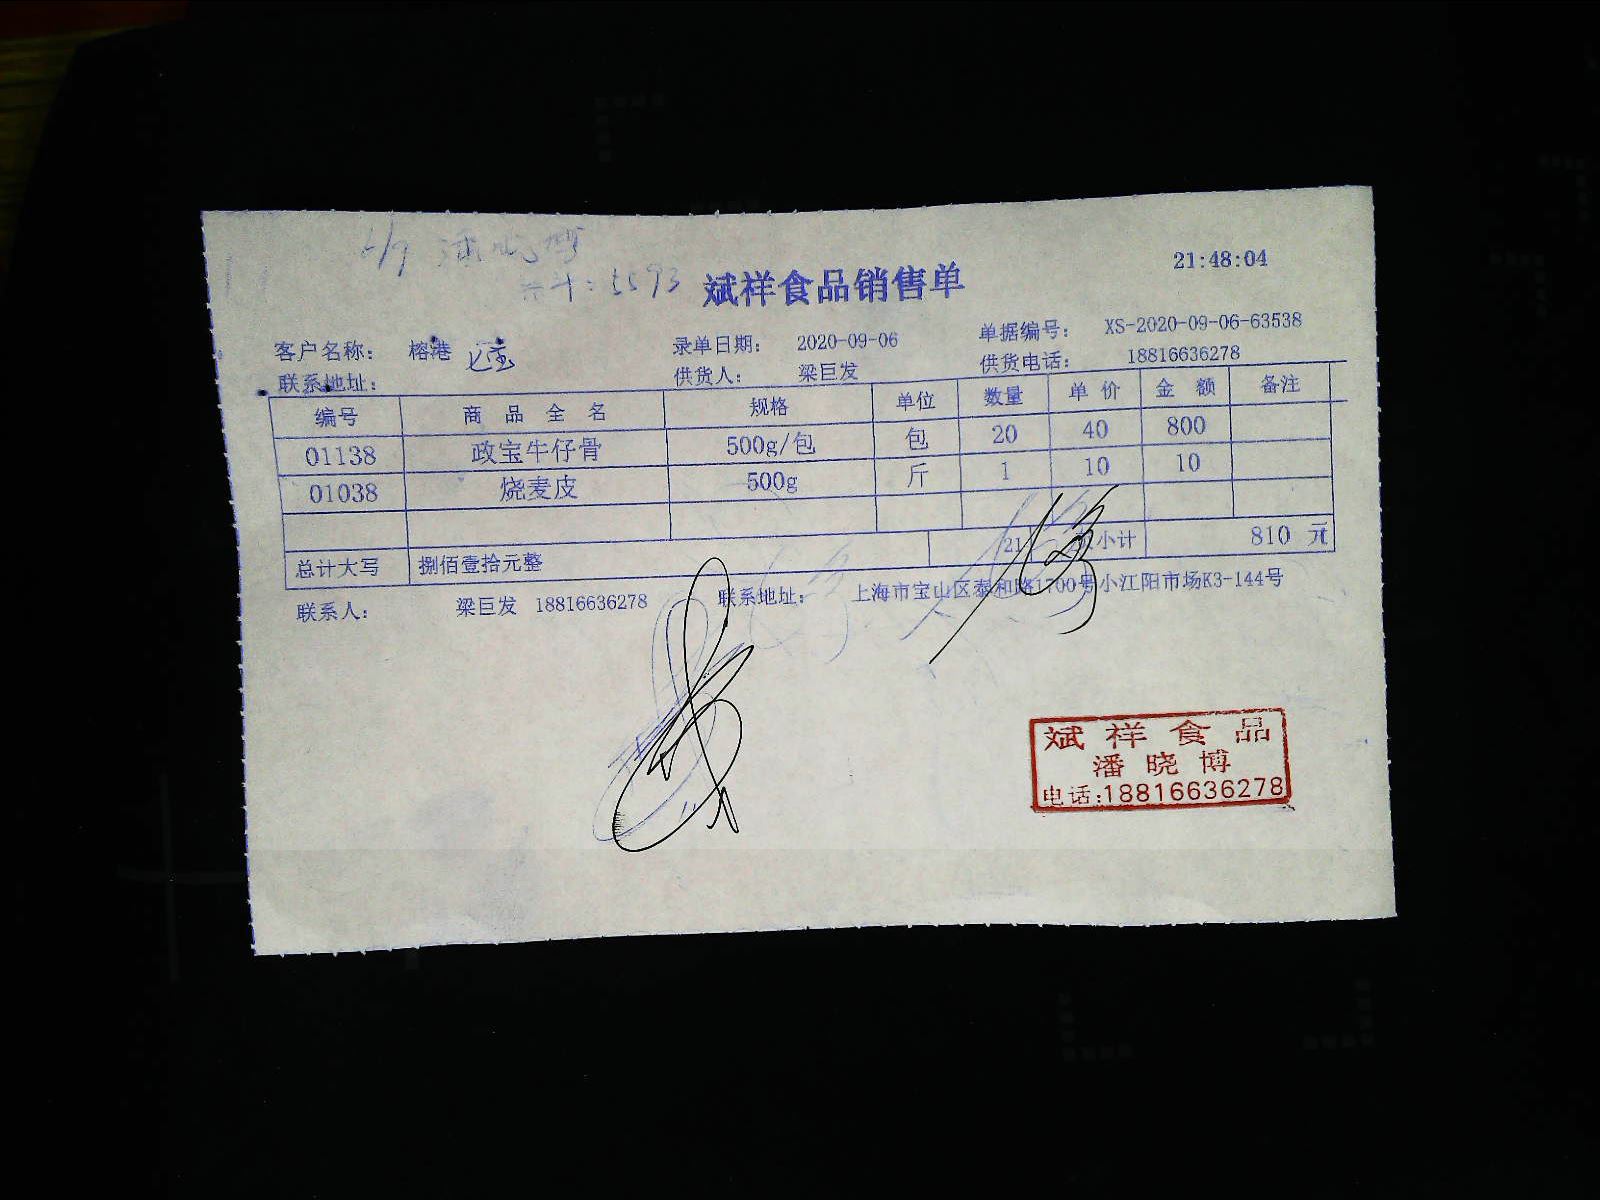 21:48:04
斌祥食品销售单
客户名称： 榕港 七宝 录单日期： 2020-09-06 单据编号： XS-2020-09-06-63538
联系地址： 供货人： 梁巨发 供货电话： 18816636278
编号 商 品 全 名 规格 单位 数量 单 价 金 额 备注
01138 政宝牛仔骨 500g/包 包 20 40 800
01038 烧麦皮 500g 斤 1 10 10
总计大写 捌佰壹拾元整 21 小计 810 元
联系人： 梁巨发 18816636278 联系地址： 上海市宝山区泰和路1700号小江阳市场K3-144号
斌祥食品
潘晓博
电话:18816636278